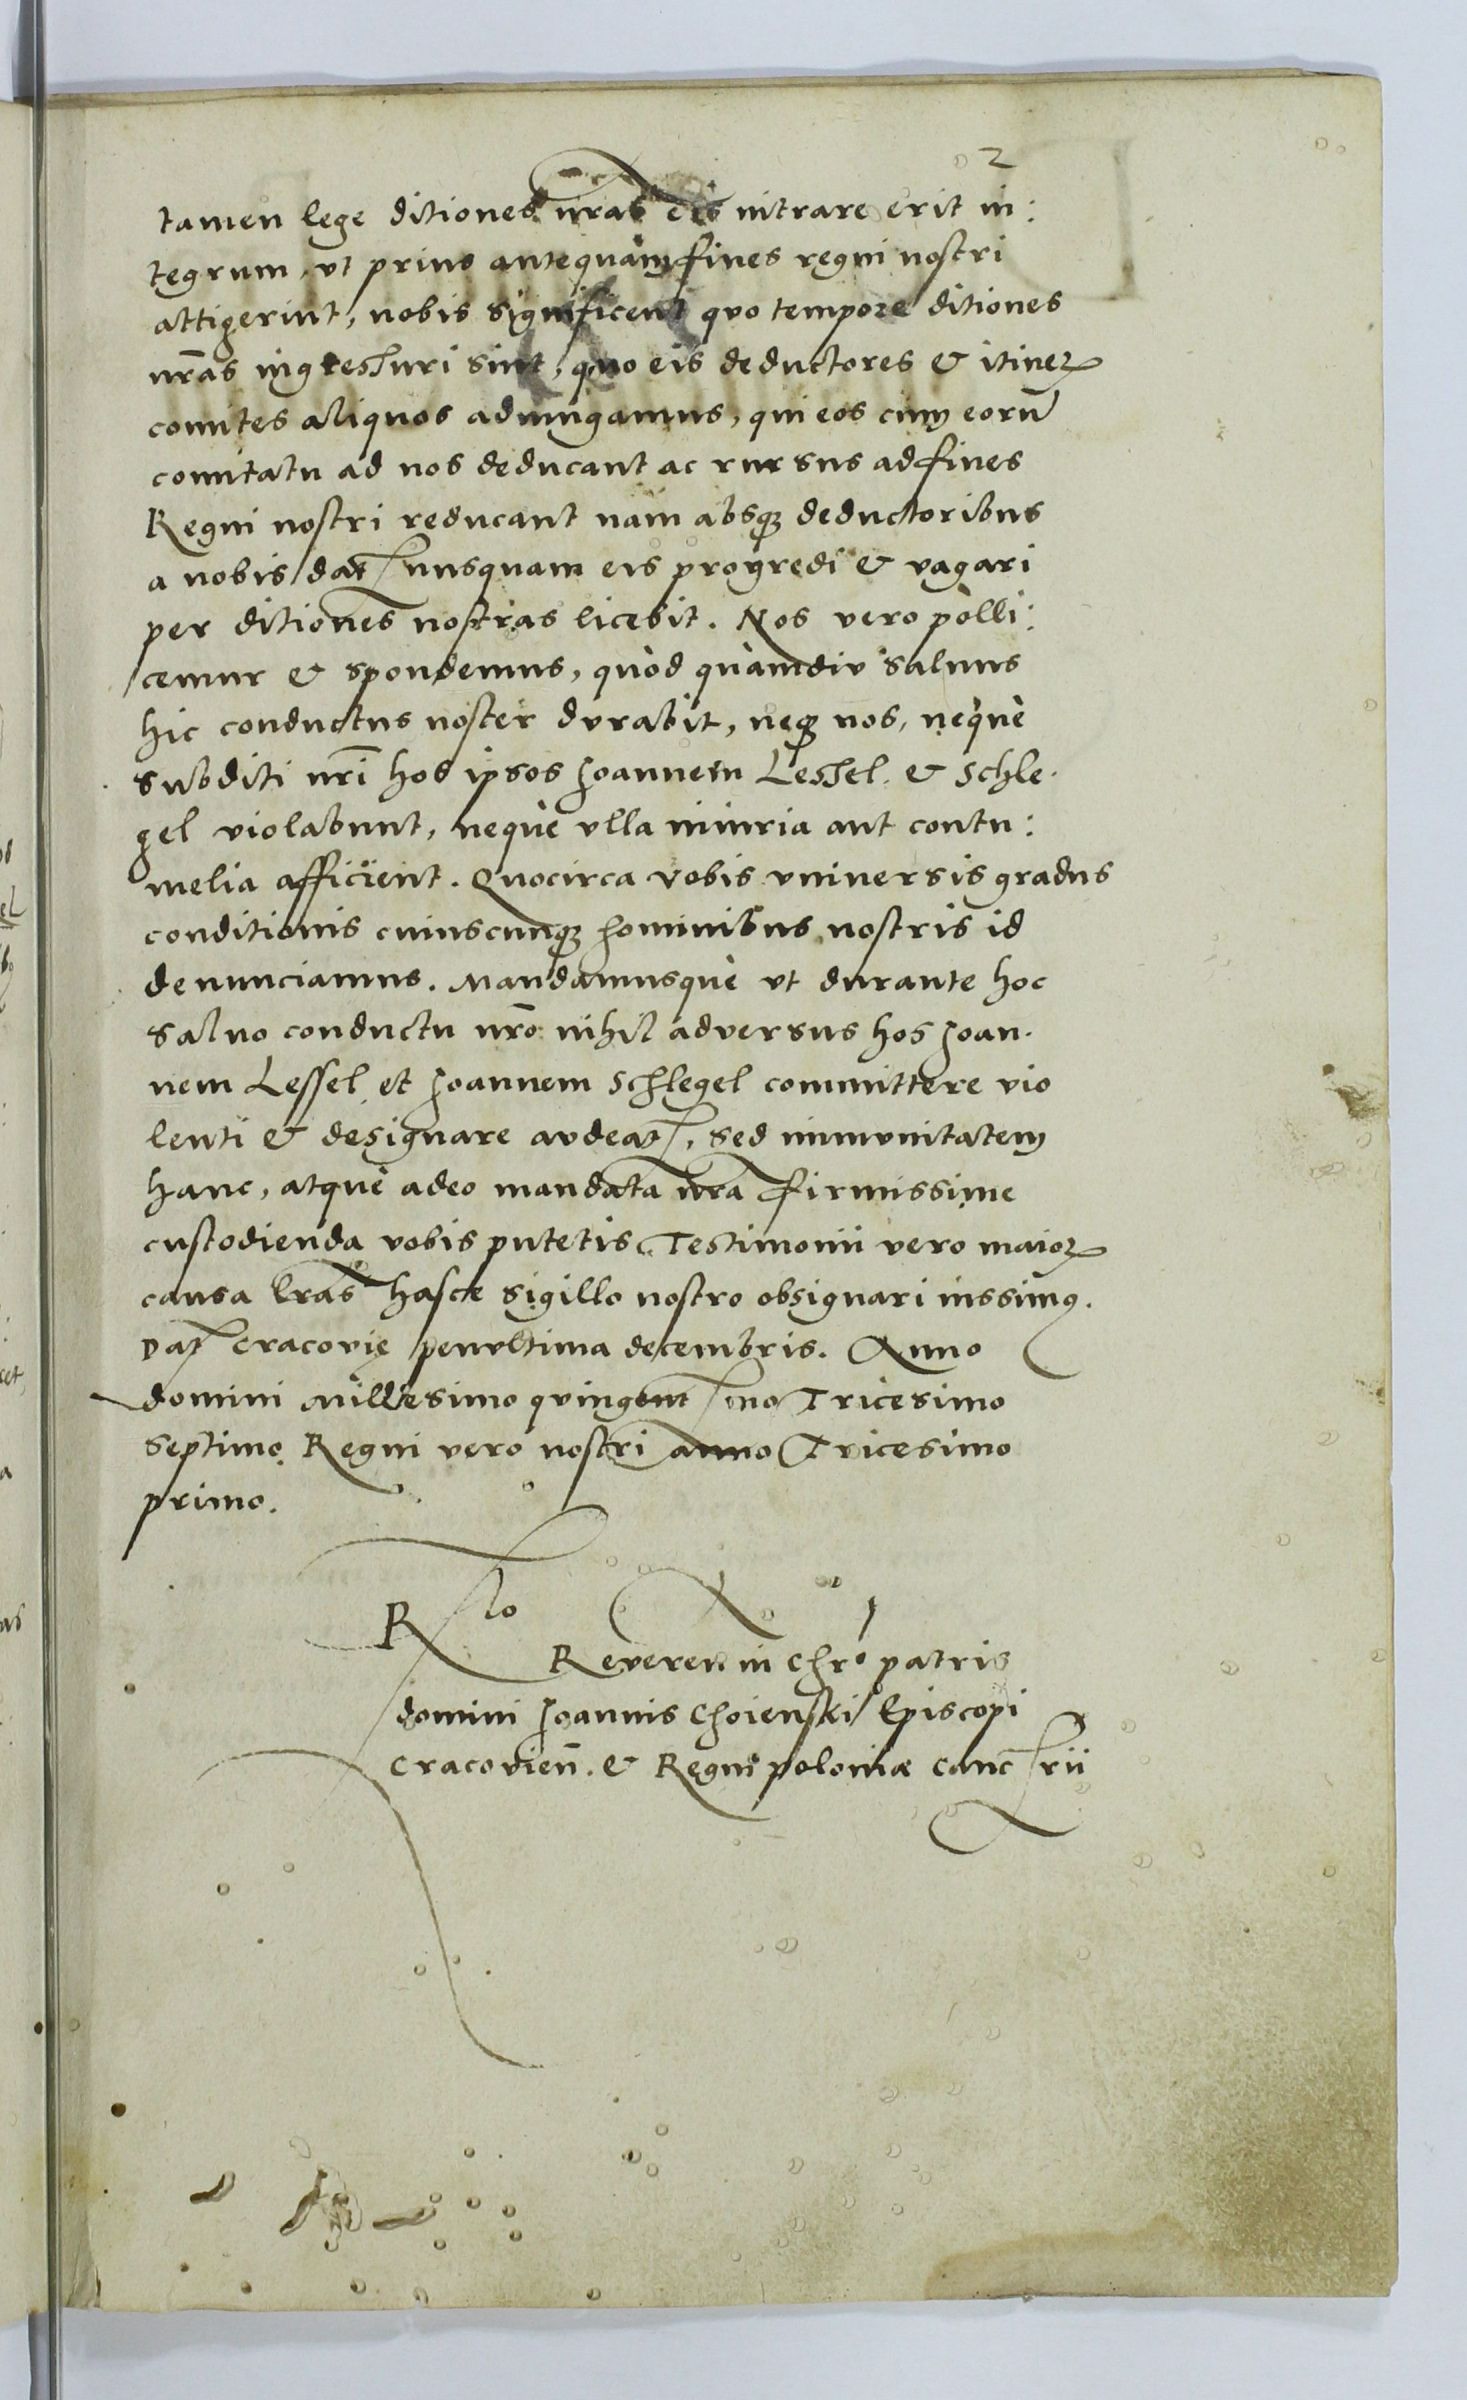 2
tamen lege ditiones nr̃as eis intrare erit in:
tegrum, vt prius antequàm fines regni nostri
attigerint, nobis significent quo tempore ditiones
nr̃as ingressuri sint, quo eis deductores & itineꝝ
comites aliquos adiungamus, qui eos cum eorũ
comitatu ad nos deducant ac rursus ad fines
Regni nostri reducant nam absqꝫ deductoribus
a nobis dat nusquam eis progredi & vagari
per ditiones nostras licebit. Nos vero polli:
cemur & spondemus, quòd quàmdiu saluus
hic conductus noster durabit, neqꝫ nos, nequè
subditi nr̃i hos ipsos Joannem Lessel & Schle-
gel violabunt, nequè vlla iniuria aut contu:
melia afficient. Quocirca vobis vniuersis gradus
conditionis cuiuscunqꝫ hominibus nostris id
denunciamus. Mandamusquè vt durante hoc
saluo conductu nr̃o nihil adversus hos Joan-
nem Lessel et Joannem Schlegel committere vio
lenti & designare audeat, sed immunitatem
hanc, atquè adeo mandata nr̃a firmissime
custodienda vobis putetis Testimonii vero maioꝝ
causa lr̃as hasce sigillo nostro obsignari iussimꝰ.
Dat Cracovię penultima decembris. Anno
domini Millesimo quingentmo Tricesimo
septimo Regni vero nostri anno Tricesimo
primo.
Rlo
Reveren in Chrᵒ patris
domini Joannis Choienski Episcopi
Cracovien̄. & Regni poloniæ Cancrii